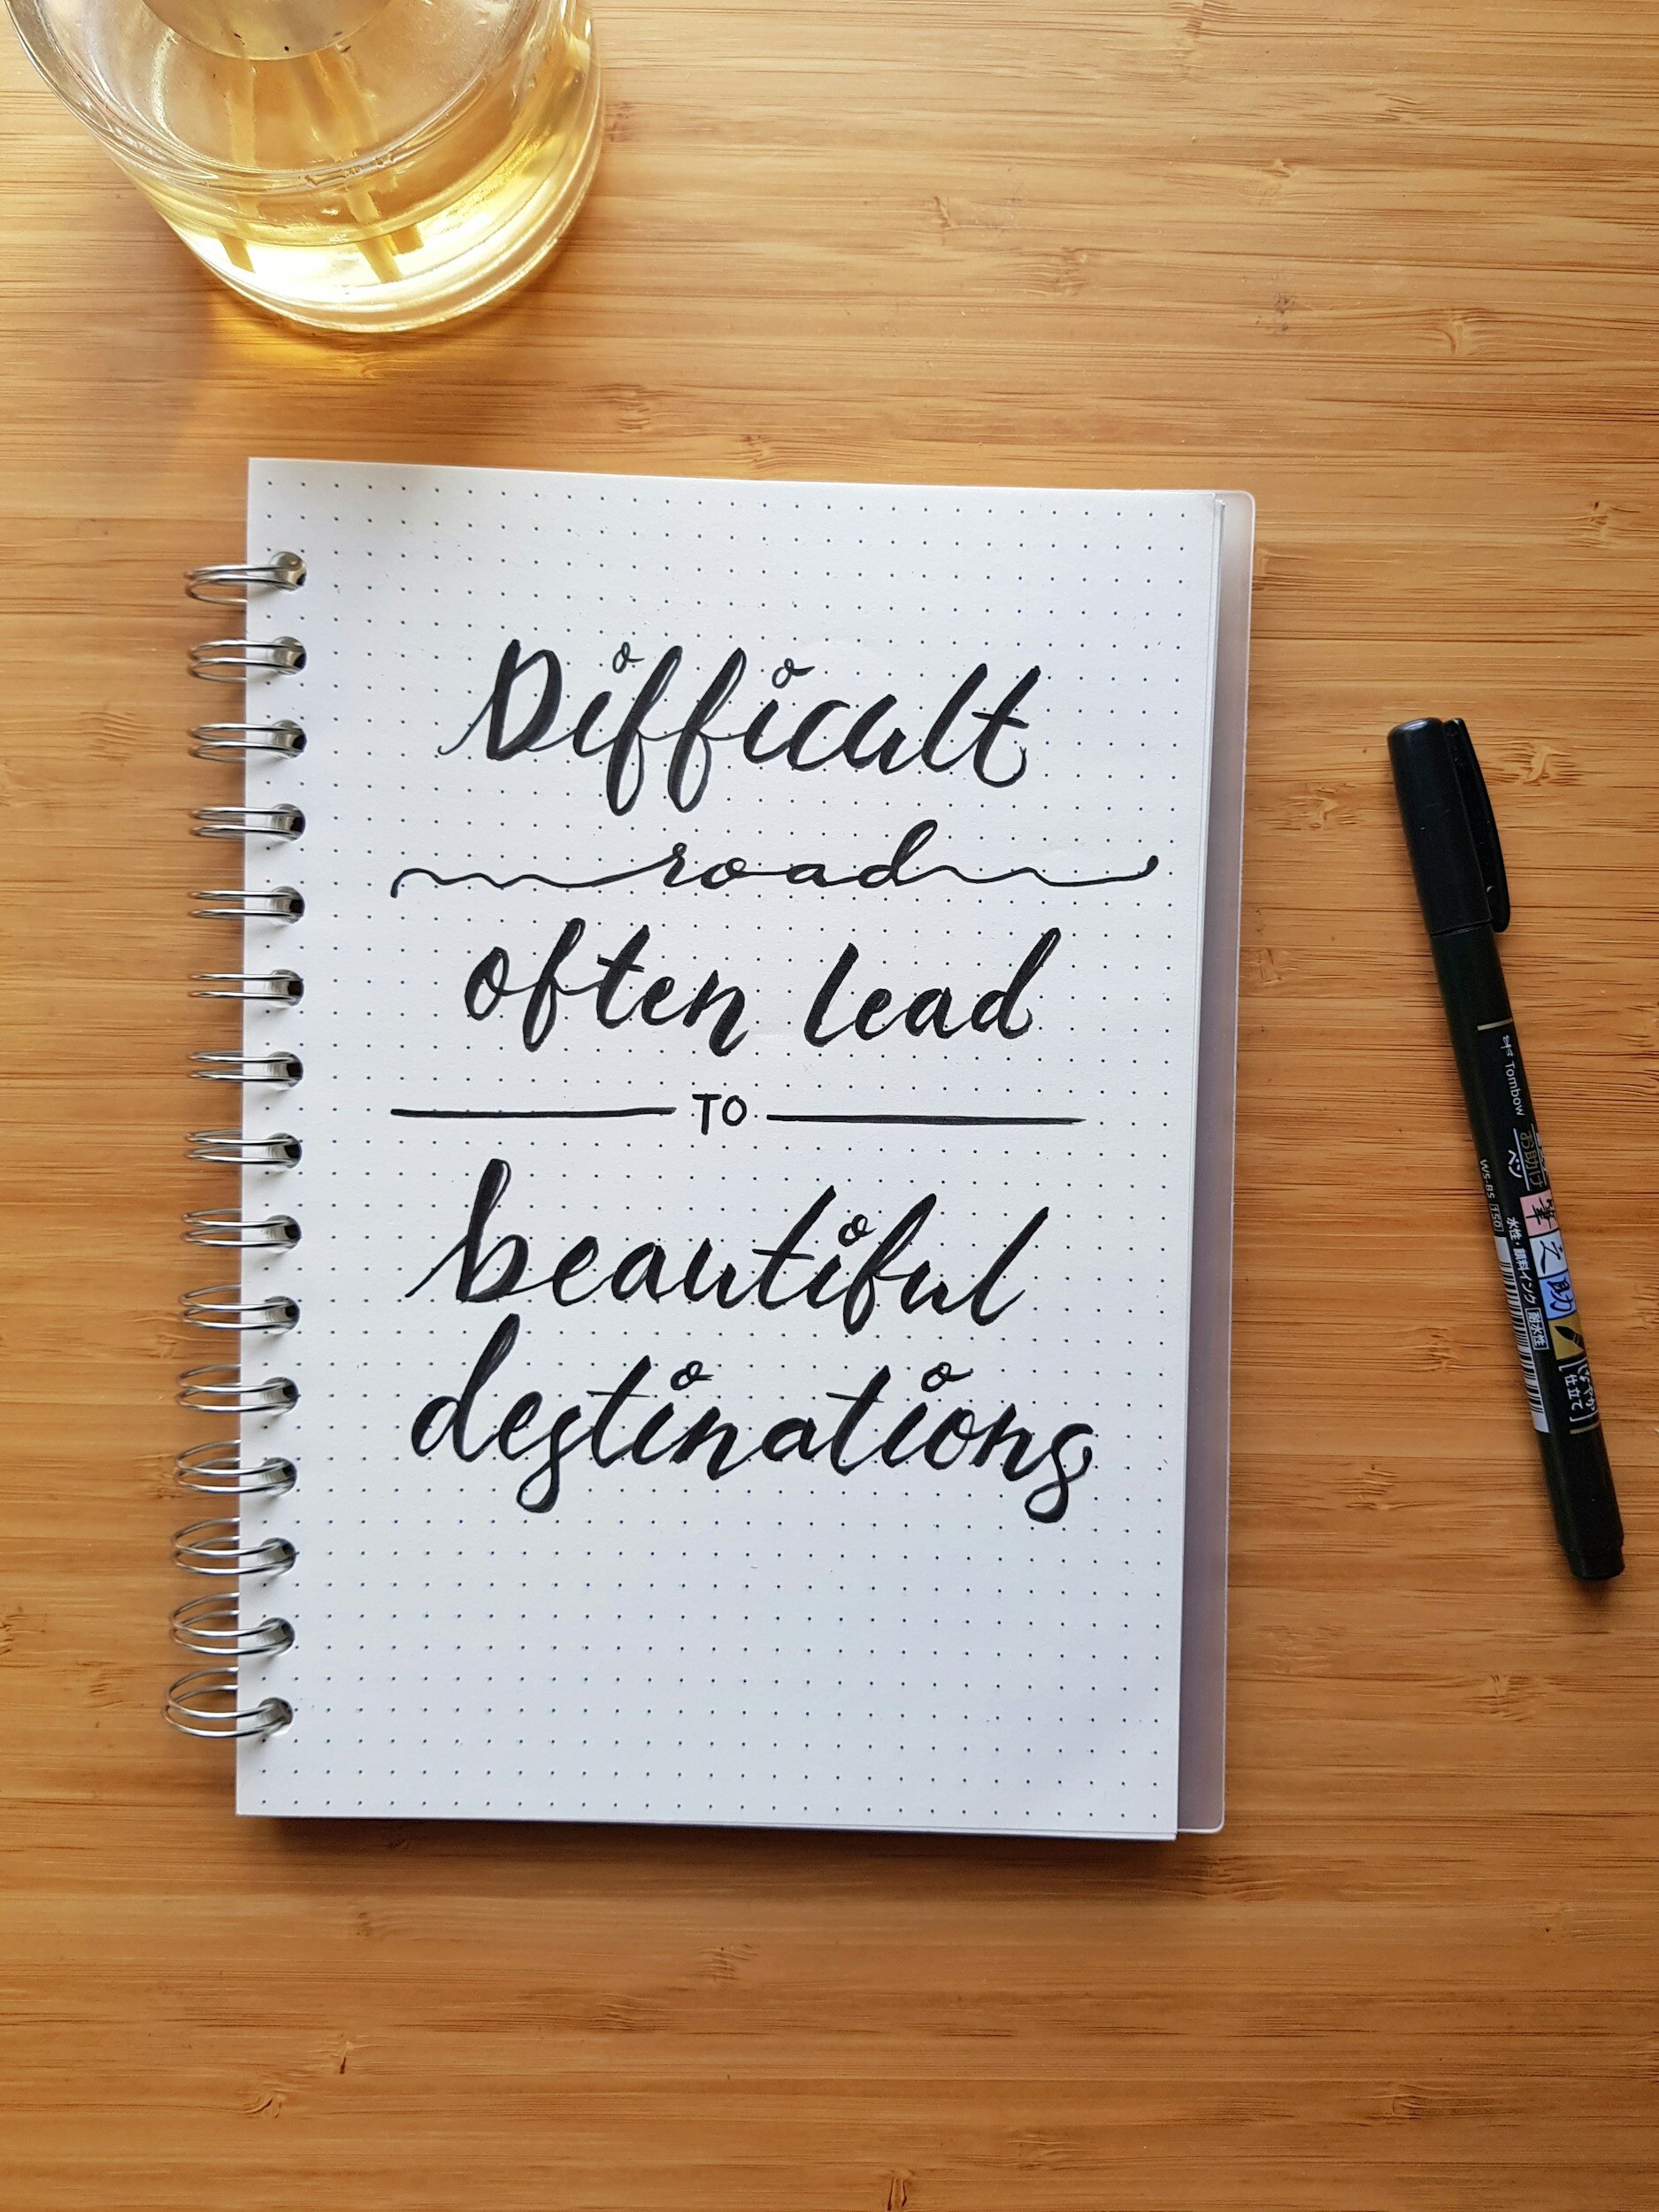 Difficult
road
often lead
TO
beautiful
destinations
Tombow
WS-BS 150
水性・顔料インク 耐水性
筆之助